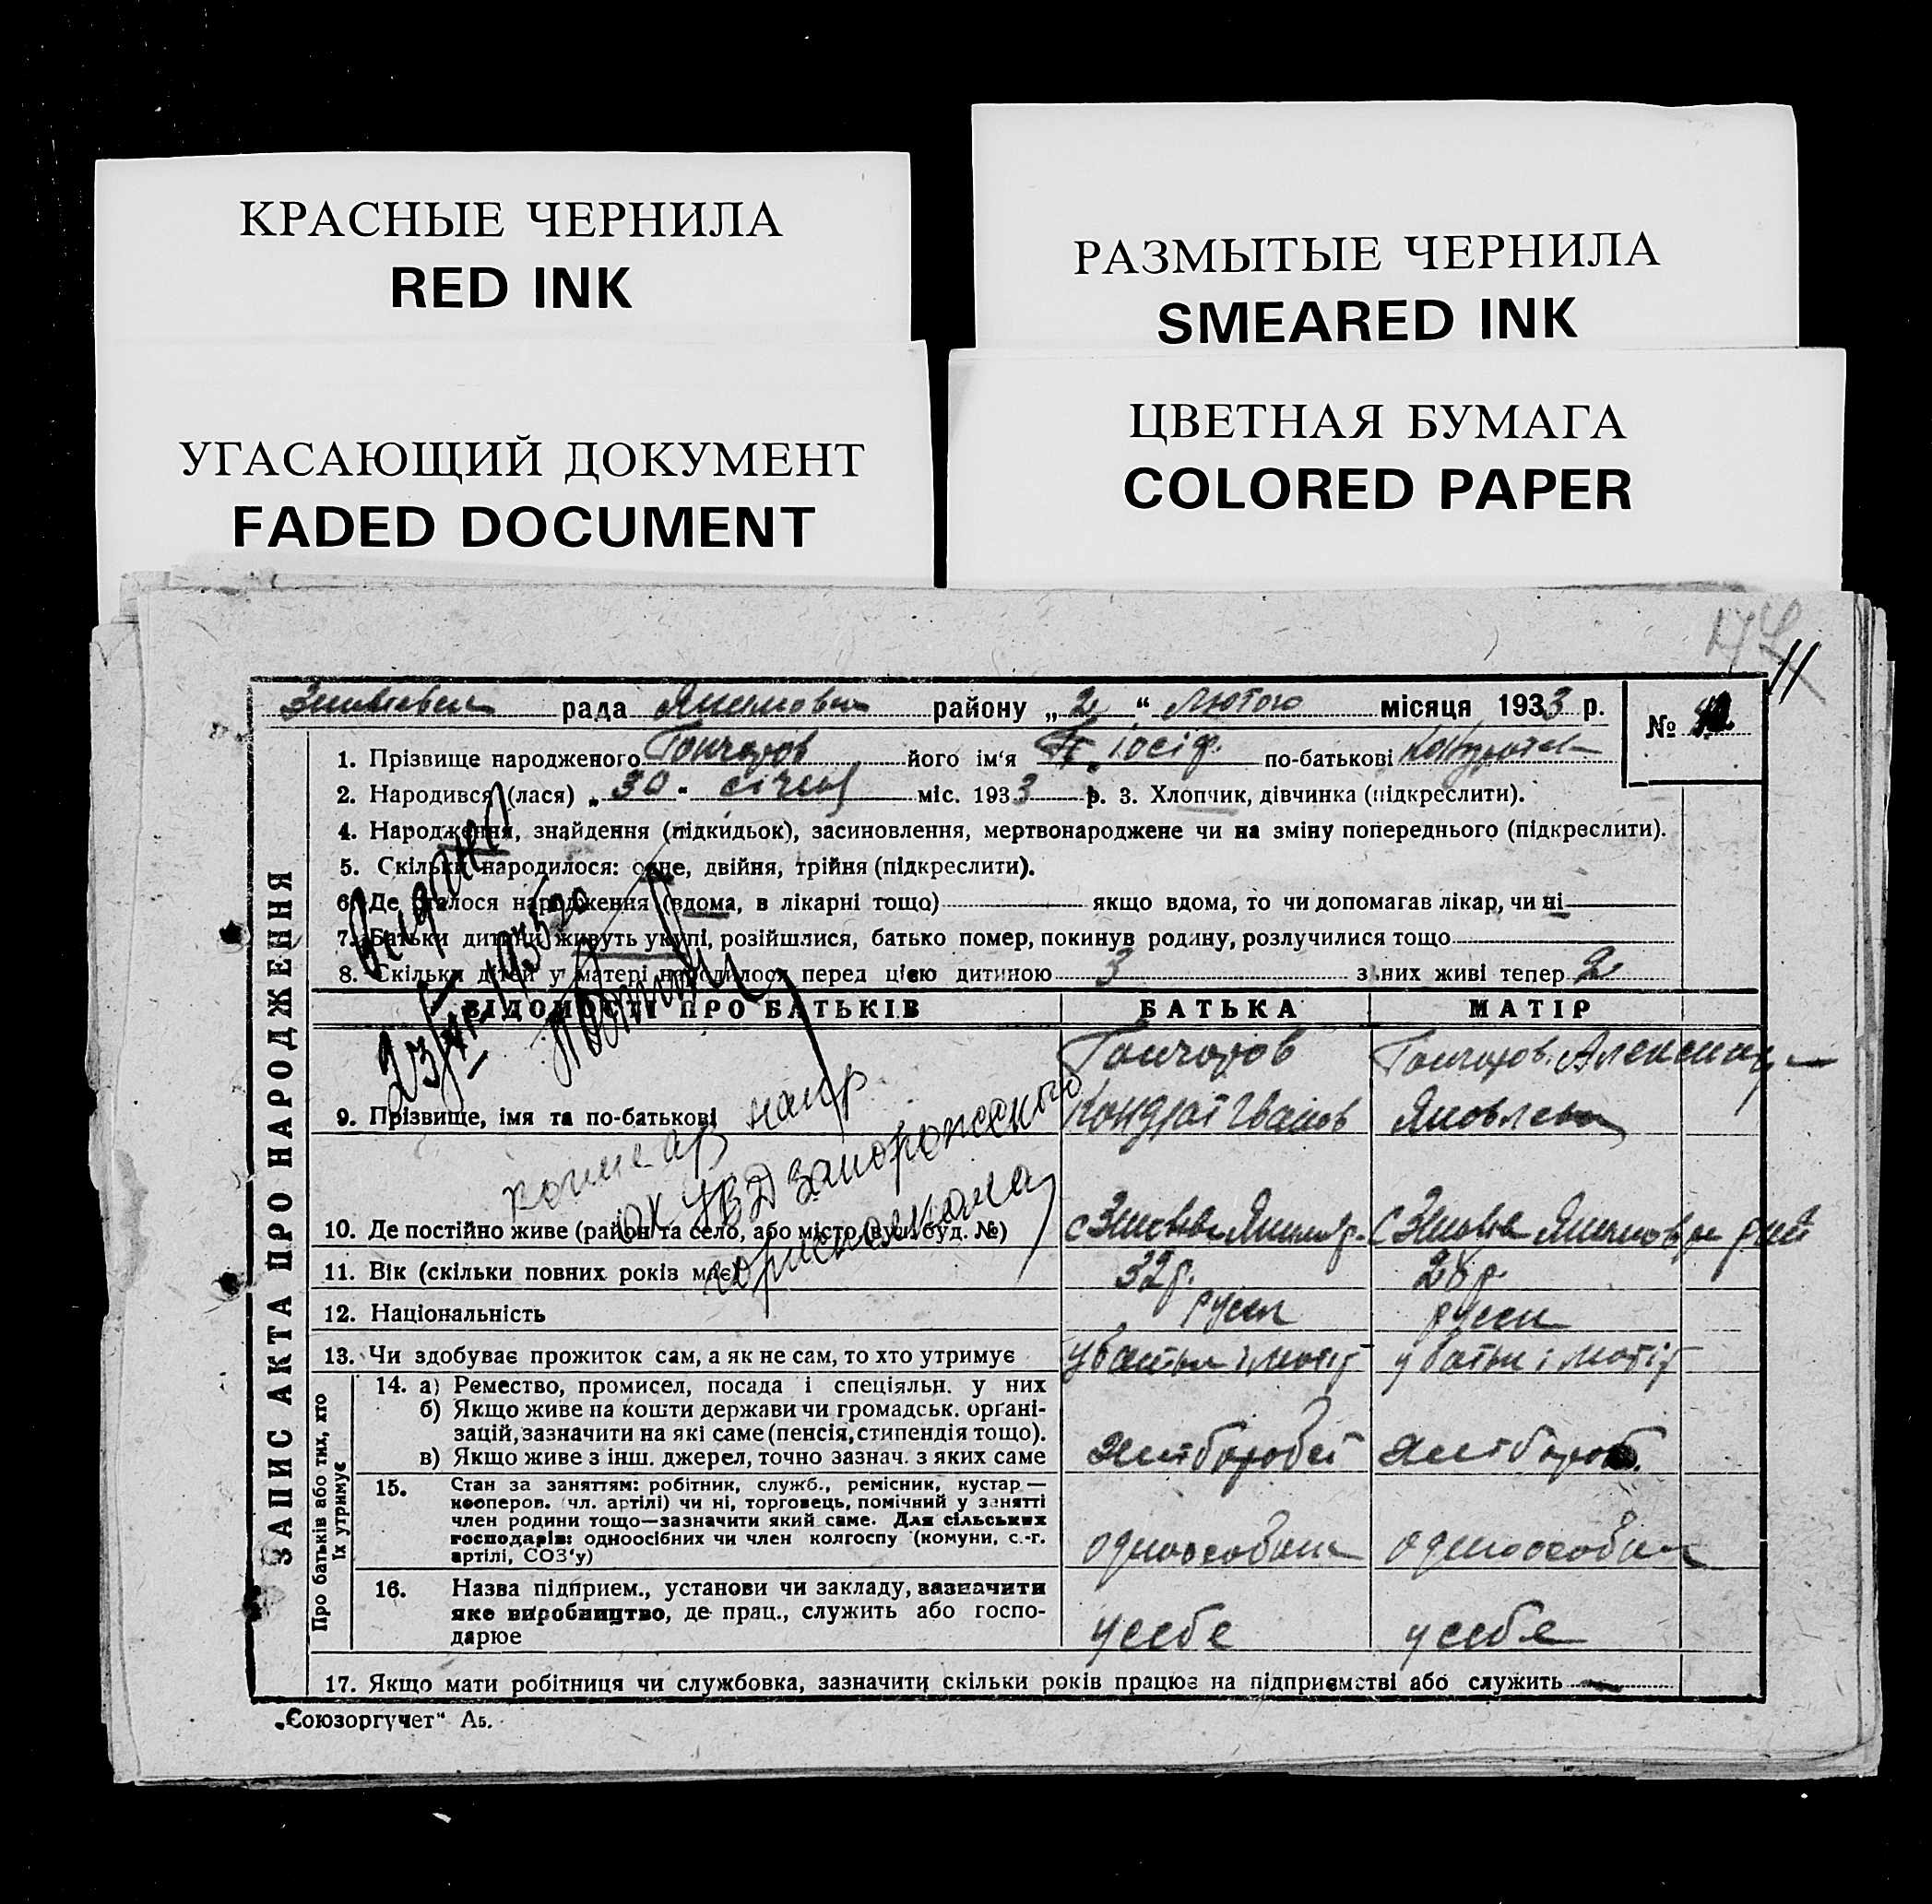 КРАСНЫЕ ЧЕРНИЛА
RED INK
РАЗМЫТЫЕ ЧЕРНИЛА
SMEARED INK
УГАСАЮЩИЙ ДОКУМЕНТ
FADED DOCUMENT
ЦВЕТНАЯ БУМАГА
COLORED PAPER
11
рада району „ 2 “ Лютого місяця 1933 р.
№
1. Прізвище народженого Гончаров його ім‘я Іосіф. по-батькові
2. Народився (лася) „ 30 “ січня міс. 1933 р. 3. Хлопчик, дівчинка (підкреслити).
4. Народження, знайдення (підкидьок), засиновлення, мертвонароджене чи на зміну попереднього (підкреслити).
5. Скільки народилося: одне, двійня, трійня (підкреслити).
6. Де сталося народження (вдома, в лікарні тощо) якщо вдома, то чи допомагав лікар, чи ні
7. Батьки дитини живуть укупі, розійшлися, батько помер, покинув родину, розлучилися тощо
8. Скільки дітей у матері народилося перед цією дитиною 3 з них живі тепер 2
ЗАПИС АКТА ПРО НАРОДЖЕННЯ
ВІДОМОСТІ ПРО БАТЬКІВ БАТЬКА МАТІР
Гончаров Гончаров.
9. Прізвище, імя та по-батькові Кондрат Іванов Яковлевн
10. Де постійно живе (район та село, або місто (вул. буд. №)
11. Вік (скільки повних років має) 32 р. 28 р.
12. Національність
13. Чи здобуває прожиток сам, а як не сам, то хто утримує
Про батьків або тих, хто їх утримує
14. а) Ремество, промисел, посада і спеціяльн. у них
б) Якщо живе на кошти держави чи громадськ. органі-
зацій, зазначити на які саме (пенсія, стипендія тощо).
в) Якщо живе з інш. джерел, точно зазнач. з яких саме
15. Стан за заняттям: робітник, служб., ремісник, кустар —
кооперов. (чл. артілі) чи ні, торговець, помічний у занятті
член родини тощо—зазначити який саме. Для сільських
господарів: одноосібних чи член колгоспу (комуни, с.-г.
артілі, СОЗ‘у)
16. Назва підприєм., установи чи закладу, зазначити
яке виробництво, де прац., служить або госпо-
дарює у себе у себе
17. Якщо мати робітниця чи службовка, зазначити скільки років працює на підприємстві або служить
„Союзоргучет“ Аб.